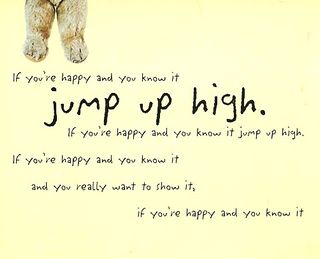 If you're happy and you know it
jump up high.
If you're happy and you know it jump up high.
If you're happy and you know it
and you really want to show it,
if you're happy and you know it